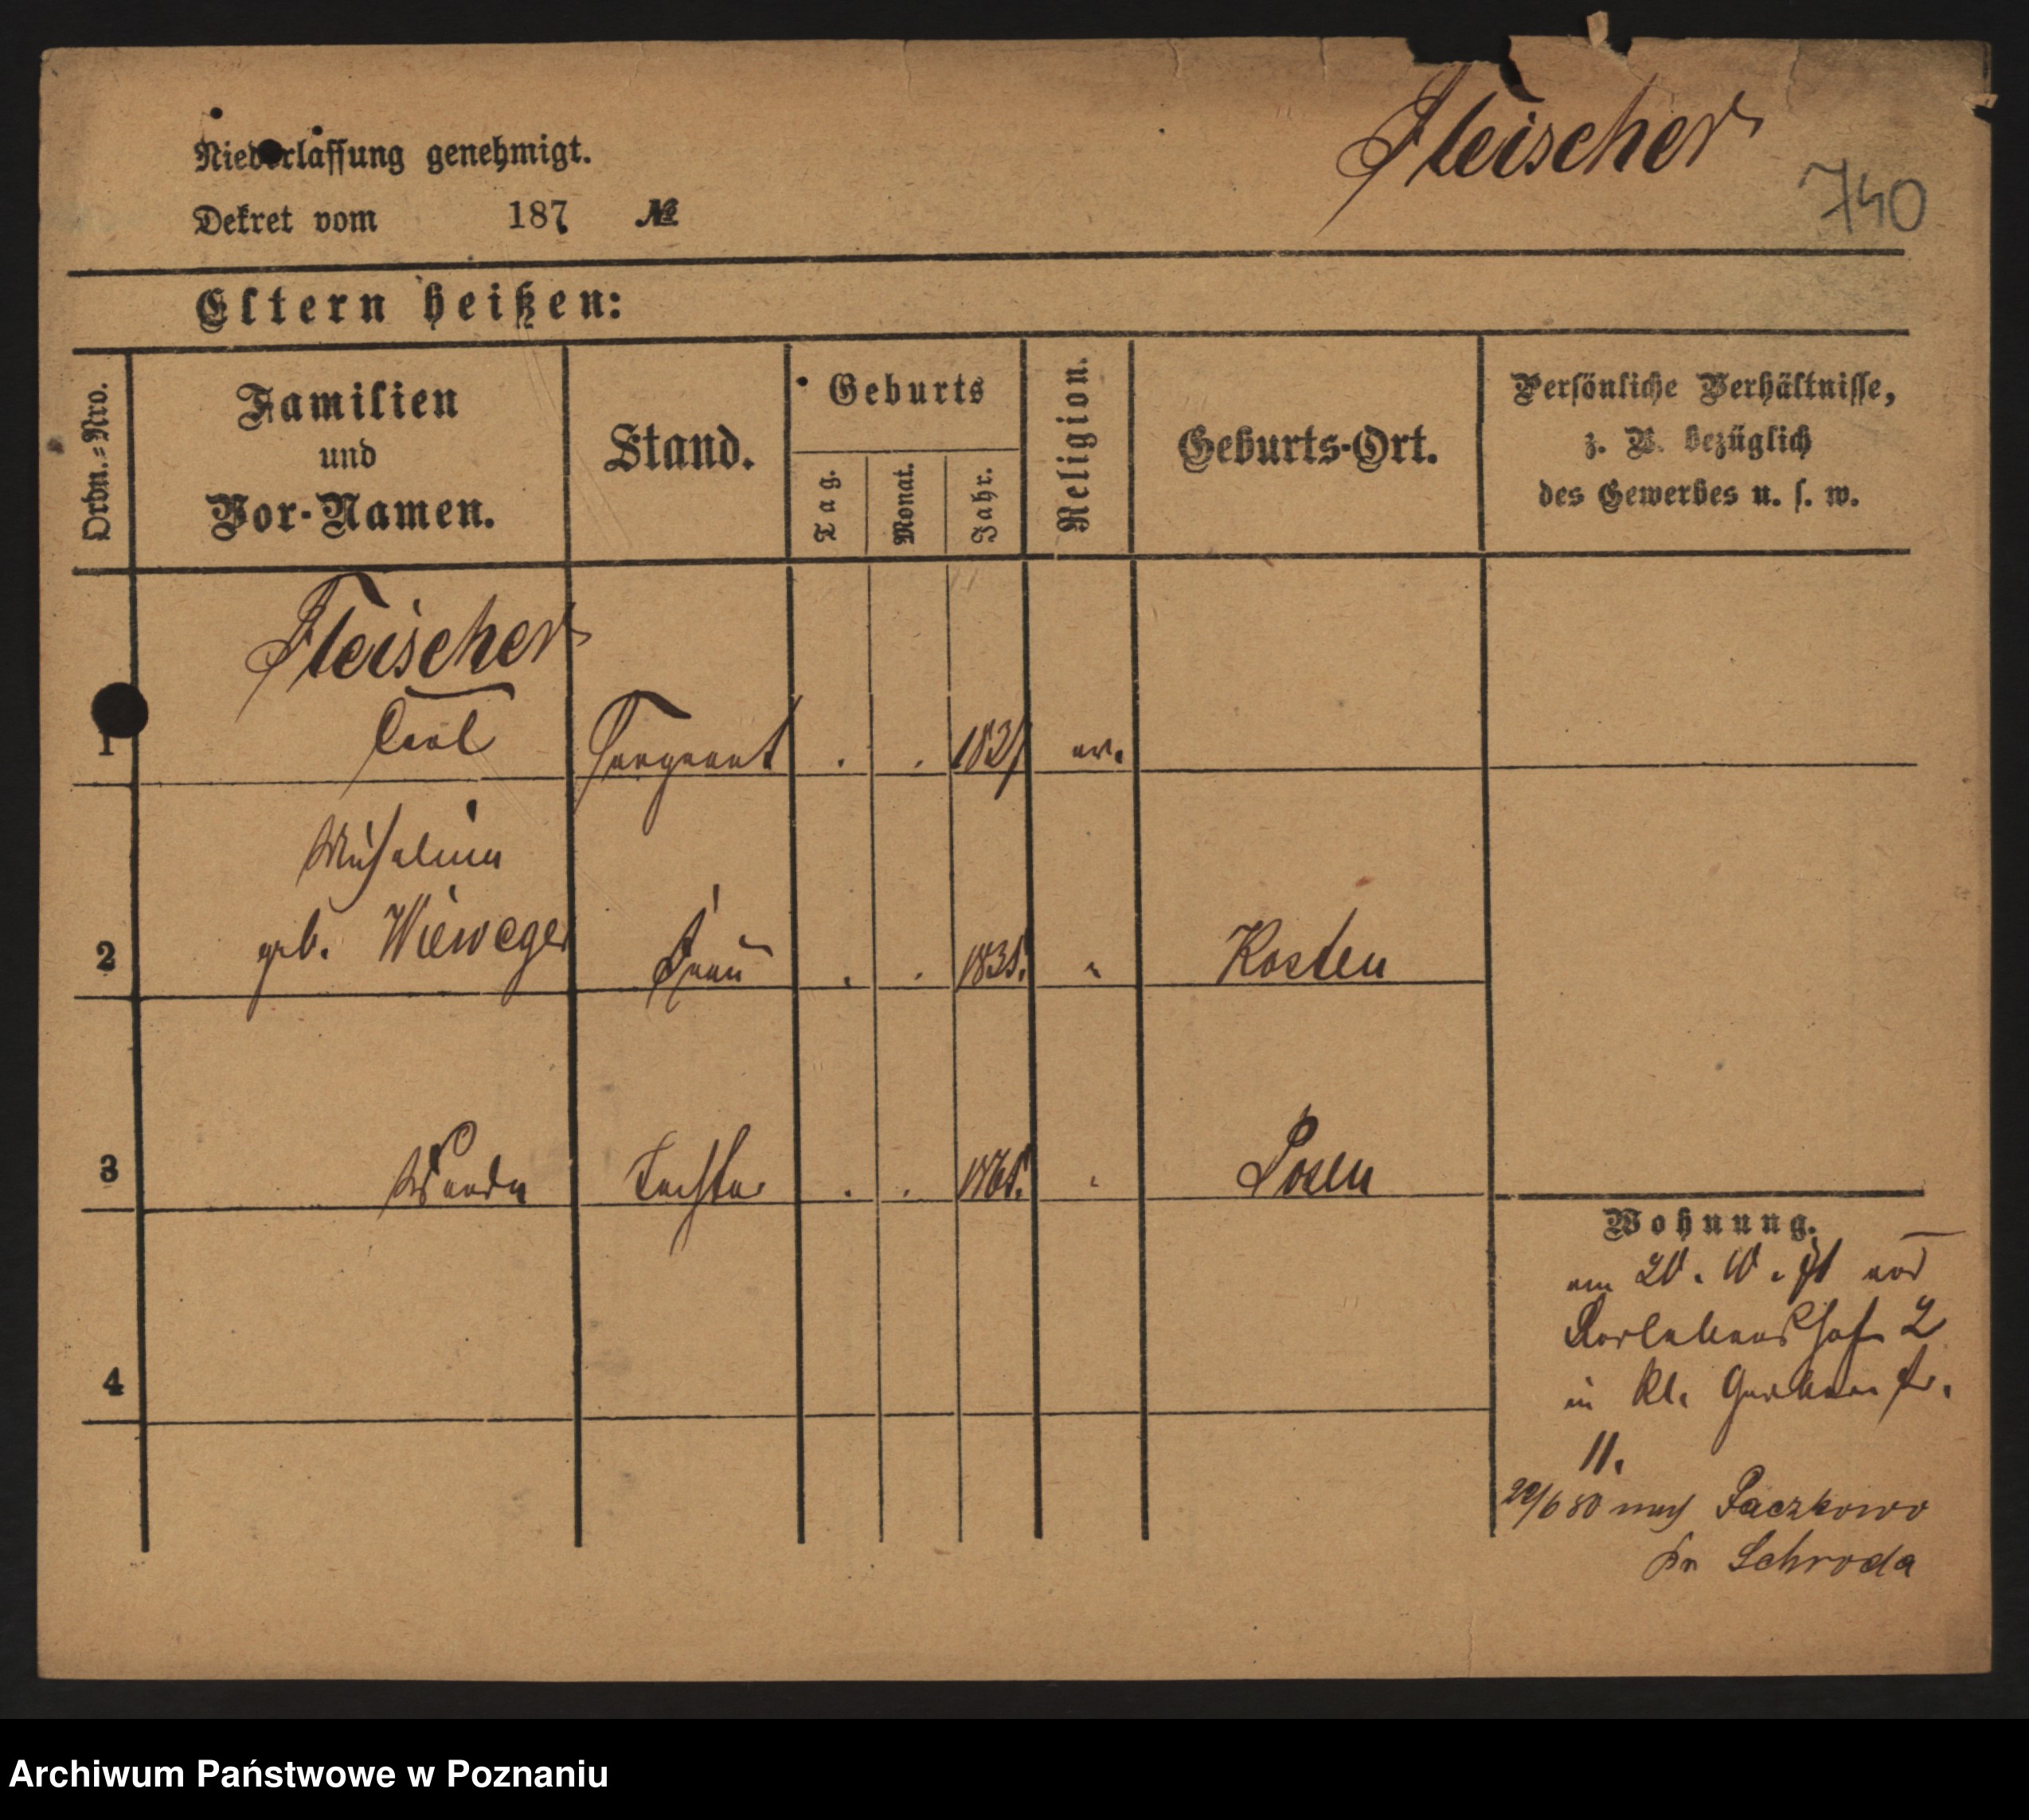 Fleischer
740
Niederlassung genehmigt.
Dekret vom 187 №
Eltern heißen:
Ordn.=Nro.
Familien
und
Vor-Namen.
Stand.
Geburts
Tag.
Monat.
Jahr.
Religion.
Geburts-Ort.
Persönliche Verhältnisse,
z. B. bezüglich
des Gewerbes u. s. w.
Fleischer
1 Carl Sergeant . . ev.
Wilhelmine
2 geb. Wieweger Frau . . 1835. " Kosten
3 Wanda Tochter . . 1865. " Posen
Wohnung.
am 20. 10.
2
in Kl. Gerberstr.
11.
22/6 80 nach Paczkowo
bei Schroda
4
Archiwum Państwowe w Poznaniu